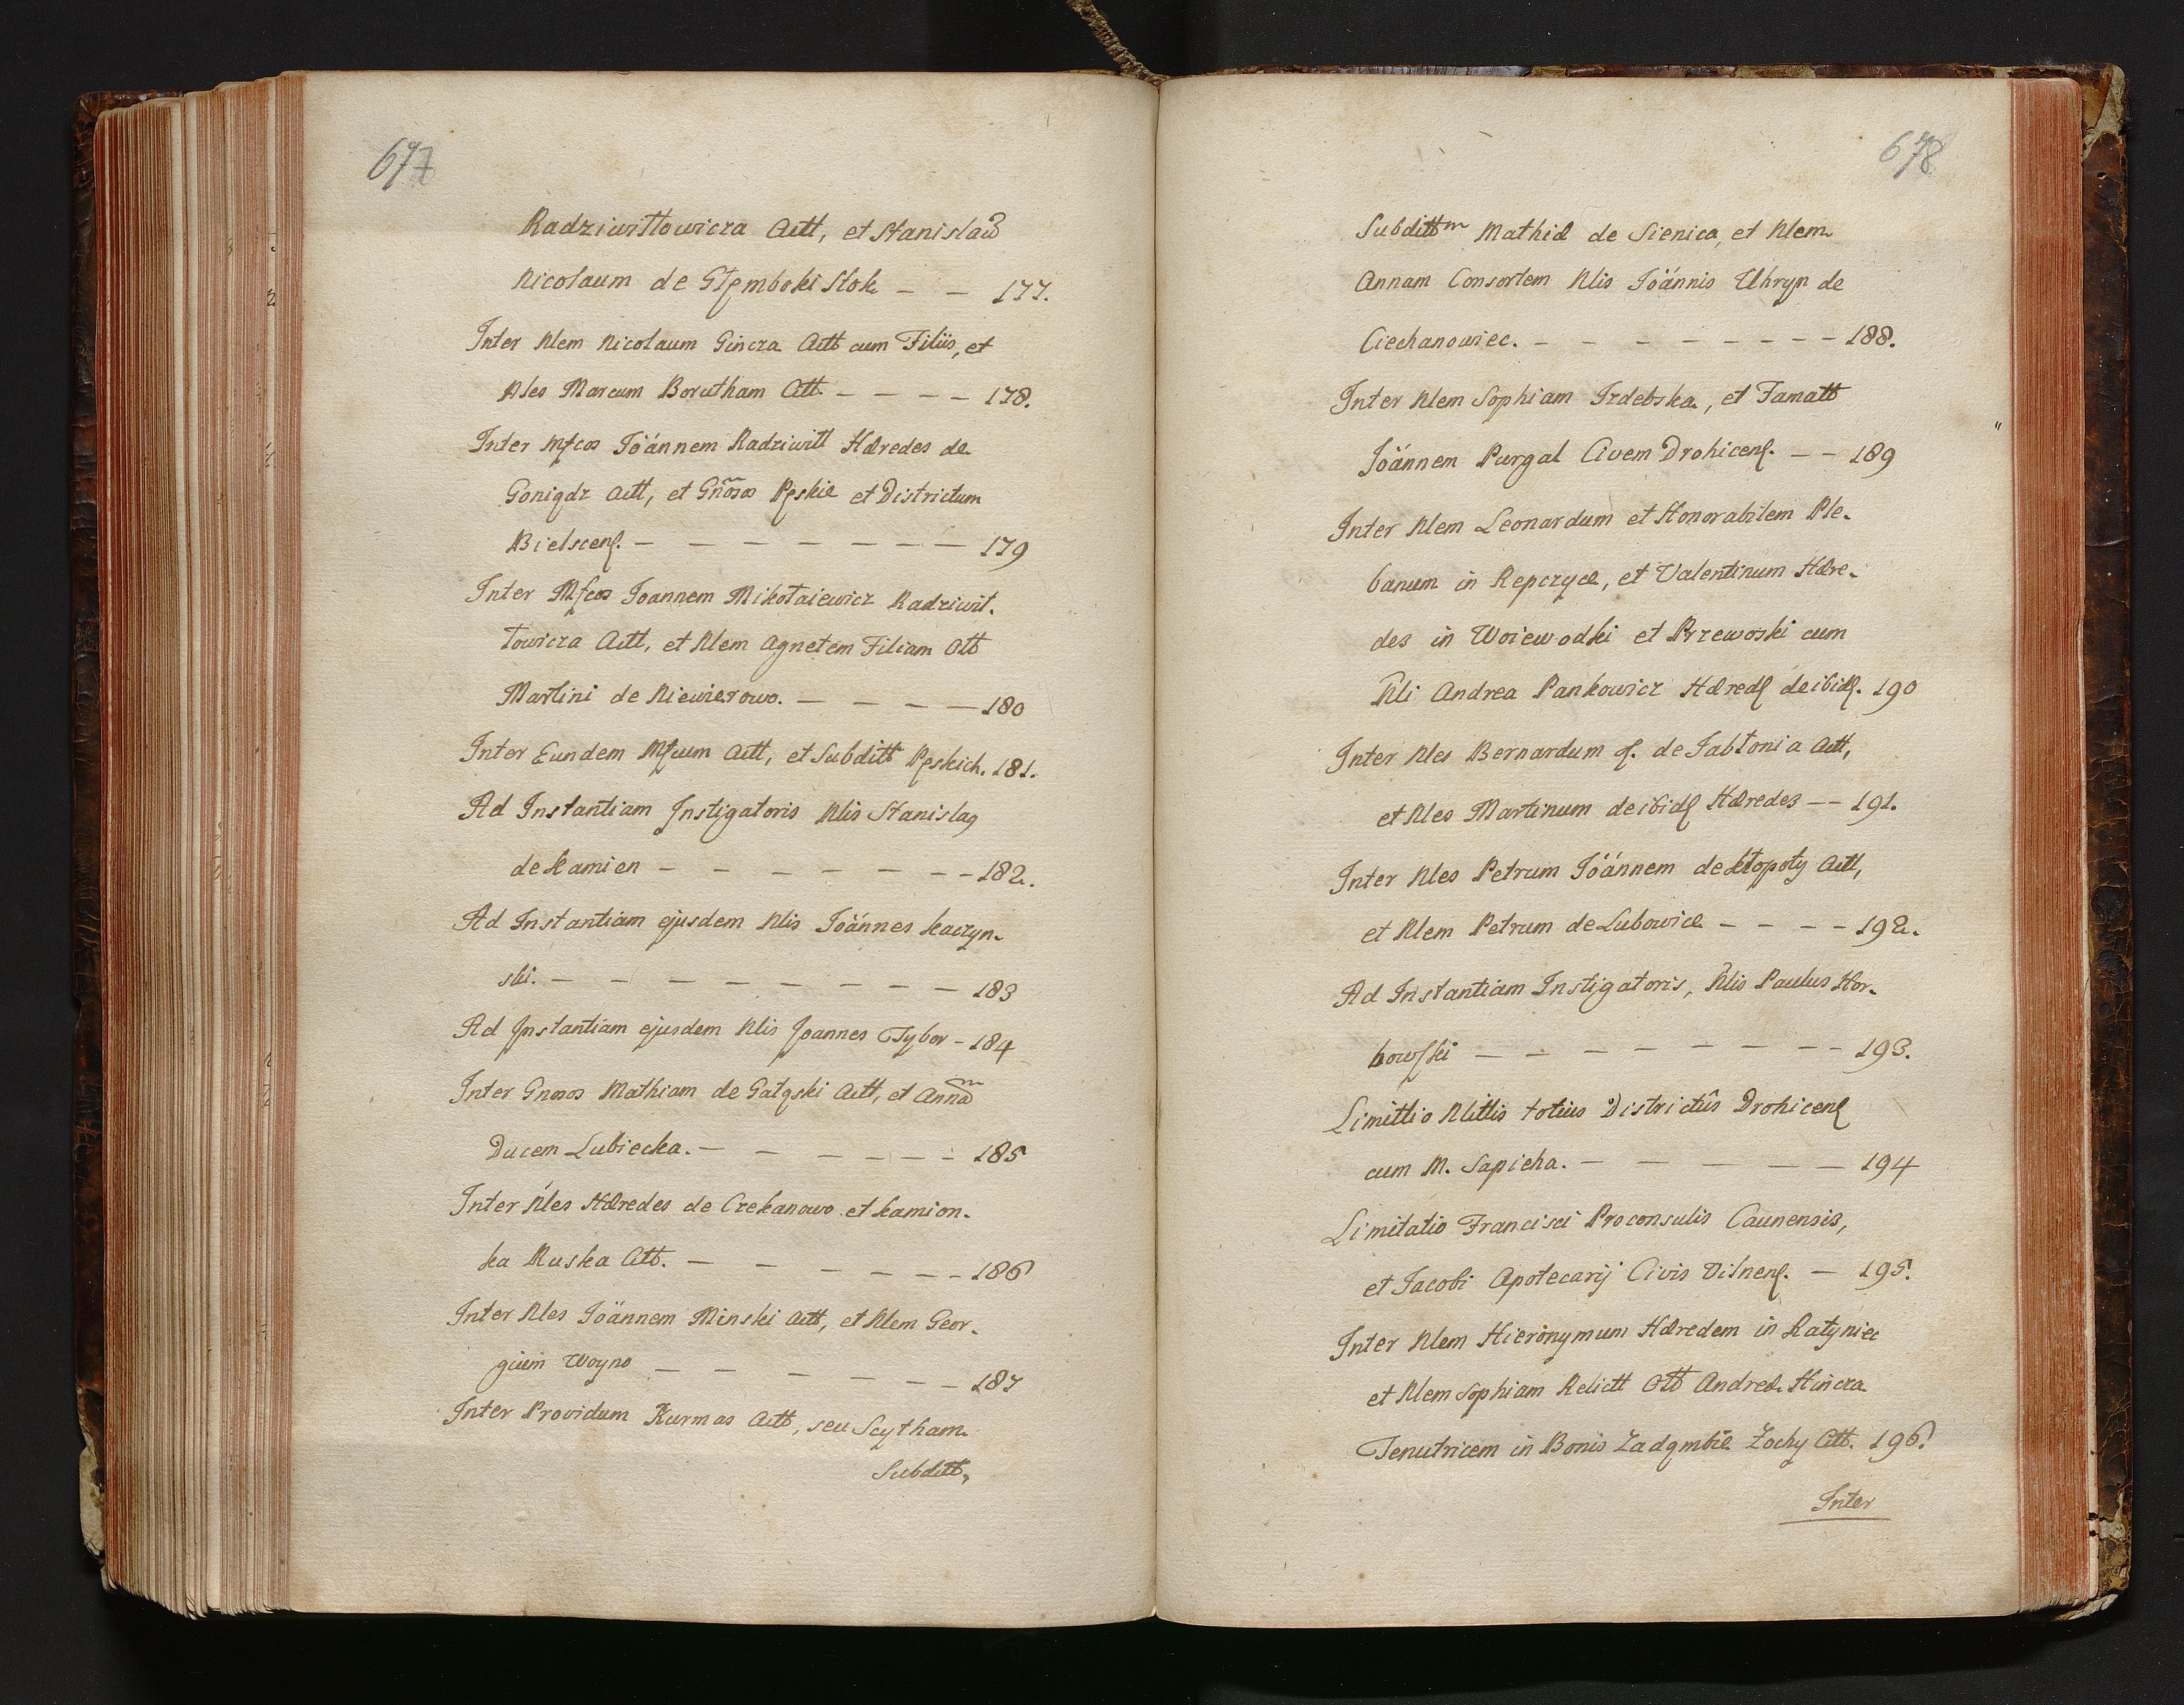 677
Radziwiłłowicza Actt, et Stanislaū
Nicolaum de Głęmboki Stok — — 177.
Inter Nlem Nicolaum Gincza Actt cum Filiis, et
Nles Marcum Borutham Citt. — — — — 178.
Inter Mfcos Joánnem Radziwill Hæredes de
Goniądz Actt, et Gnõsos Pęskie et Districtum
Bielscenſ. — — — — — — — — 179
Inter Mfcos Joannem Mikołaiewicz Radziwił-
łowicza Actt, et Nlem Agnetem Filiam Olt
Martini de Niewierowo. — — — — 180
Inter Eundem Mfcum Actt, et Subditt Pęskich. 181.
Ad Instantiam Instigatoris Nlis Stanislaỹ
de Kamien — — — — — — — 182.
Ad Instantiam ejusdem Nlis Joánnes Kaczyn-
ski. — — — — — — — — — 183
Ad Instantiam ejusdem Nlis Joannes Tybor — 184
Inter Gnosos Mathiam de Gałąski Actt, et Annã
Ducem Lubiecka. — — — — — — 185
Inter Nles Hæredes de Czekanowo et Kamion-
ka Ruska Citt. — — — — — — — 186
Inter Nles Joännem Minski Actt, et Nlem Geor-
gium Woyno — — — — — — 187
Inter Providum Kurmas Actt, seu Scytham
Subditt,
678
Subdittm Mathiæ de Sienica, et Nlem
Annam Consortem Nlis Joánnis Uhryn de
Ciechanowiec. — — — — — — — — 188.
Inter Nlem Sophiam Izdebska, et Famatt
Joánnem Purgal Civem Drohicenſ. — — 189
Inter Nlem Leonardum et Honorabilem Ple-
banum in Repczyce, et Valentinum Hære-
des in Woiewodki et Przewoski cum
Nli Andrea Pankowicz Hæredſ de ibidſ. 190
Inter Nles Bernardum ſ. de Jabłonia Actt,
et Nles Martinum de ibidſ Hæredes — — 191.
Inter Nles Petrum Joánnem de Kłopoty Actt,
et Nlem Petrum de Lubowice — — — — 192.
Ad Instantiam Instigatoris, Nlis Paulus Hor-
nowſki — — — — — — — — 193.
Limittio Nlittis totius Districtûs Drohicenſ
cum M. Sapieha. — — — — — — 194
Limitatio Francisci Proconsulis Caunensis,
et Jacobi Apotecarij Civis Vilnenſ. — 195.
Inter Nlem Hieronymum Hæredem in Ratyniec
et Nlem Sophiam Relictt Olt Andreæ Hincza
Tenutricem in Bonis Zadąmbie Żochy Citt. 196.
Inter